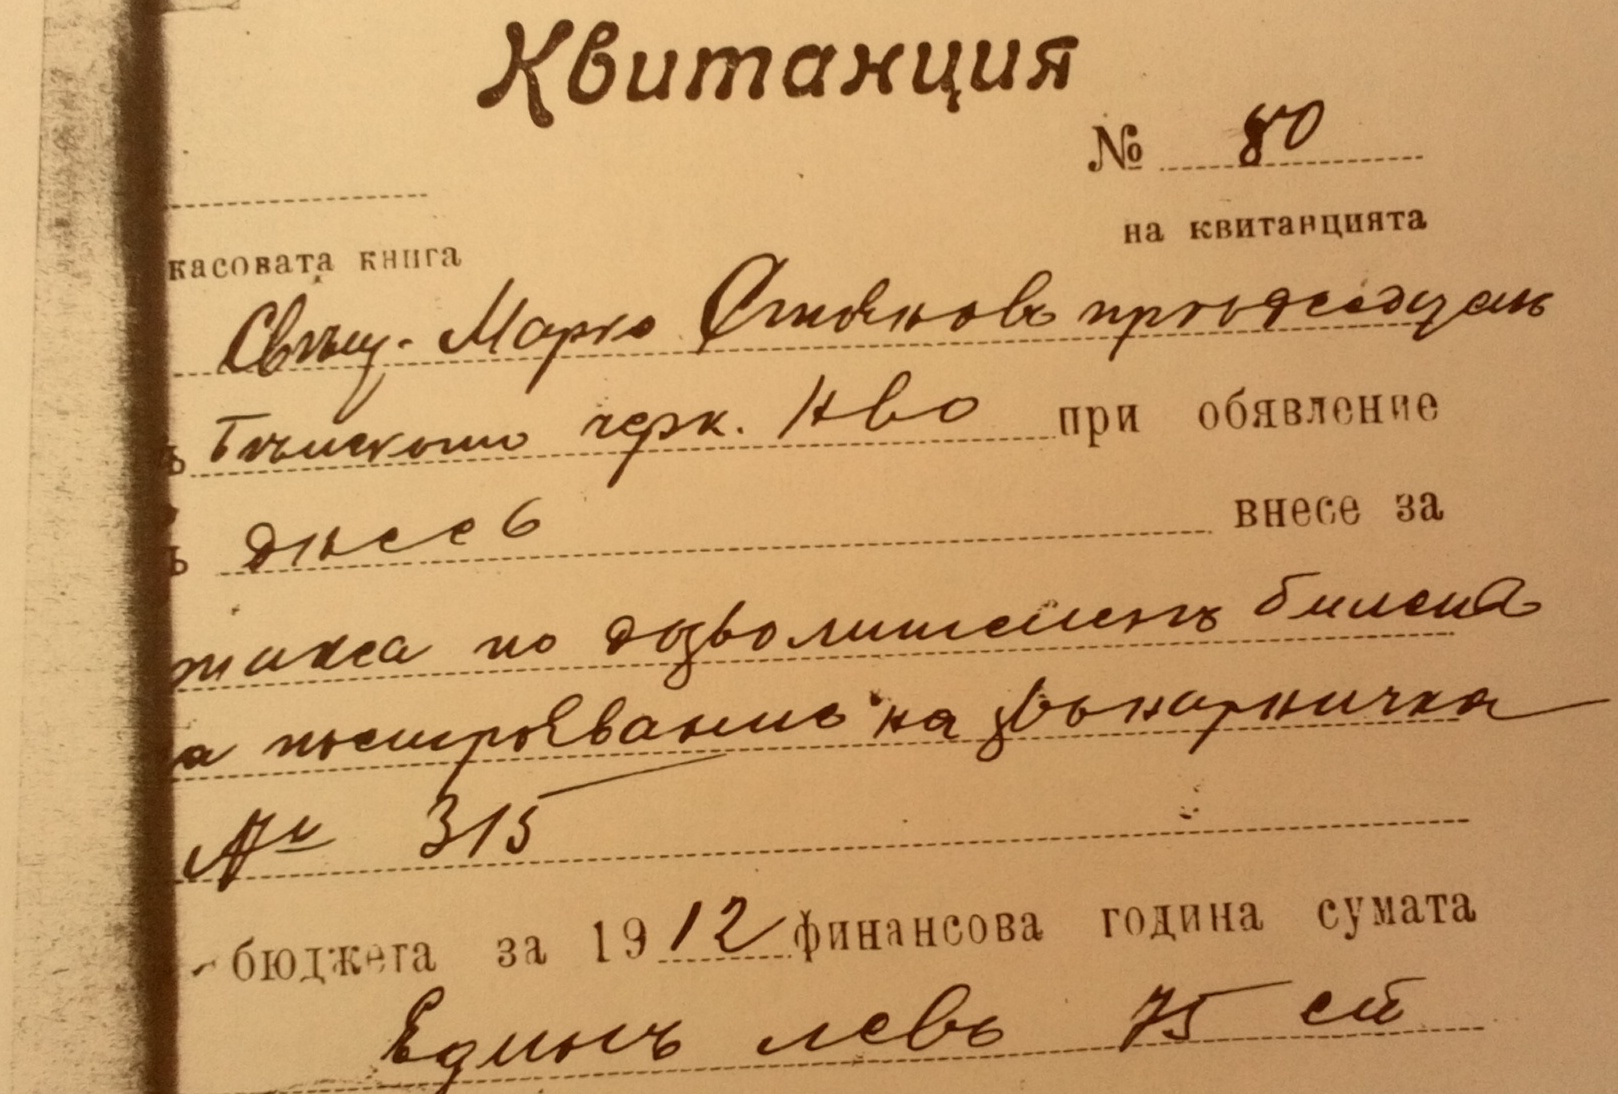 Квитанция
№ 80
на квитанцията
касовата книга
Свещ. Марко Стоянов председатель
ъ черк. Н-во при обявление
ъ днесь внесе за
такса по дозволителенъ билетъ
а построявание на звънарничка
№ 315
бюджета за 1912 финансова година сумата
Единъ левъ 75 ст